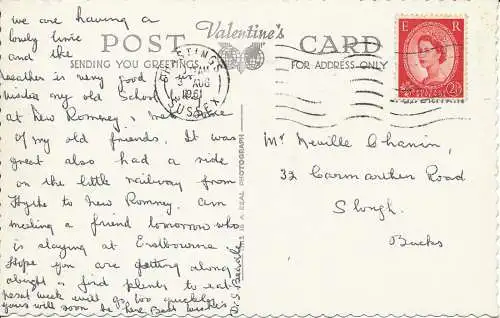 we are having a
lovely time
and the
weather is very good
my old School
at New Romney, & met one
of my old friends. It was
great also had a ride
on the little railway from
Hythe to New Romney. am
meeting a friend tomorrow who
is staying at Eastbourne.
Hope you are getting along
alright & find plenty to eat
week will go too quickly
yours will soon be here Best wishes
POST CARD
Valentine's
SENDING YOU GREETINGS
FOR ADDRESS ONLY
AUG
1961
SUSSEX
E R
2½D
THIS IS A REAL PHOTOGRAPH
Mr Neville Chanin,
32 Carmarthen Road
Slough
Bucks